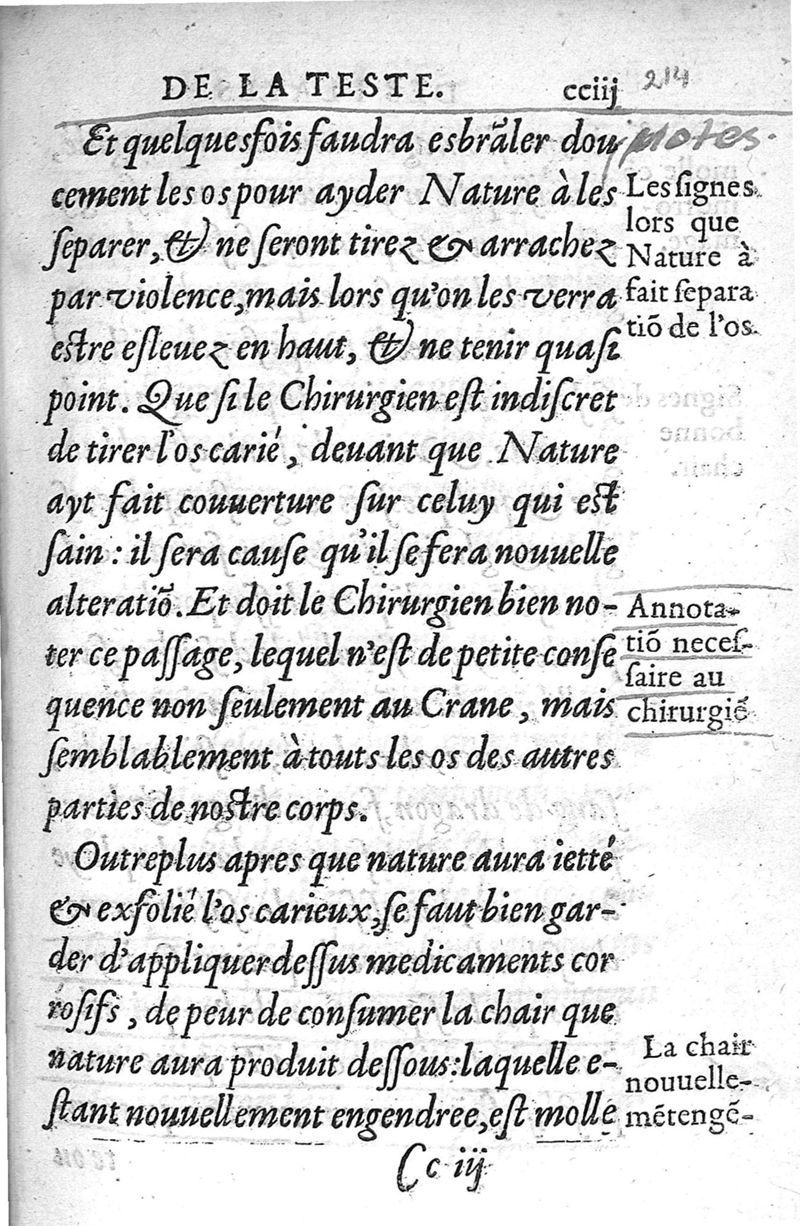 DE LA TESTE. cciij 214
Et quelquesfois faudra esbrãler dou
notes.
cement les os pour ayder Nature à les
separer, & ne seront tirez & arrachez
par violence, mais lors qu'on les verra
estre esleuez en haut, & ne tenir quasi
point. Que si le Chirurgien est indiscret
de tirer l'os carié, deuant que Nature
ayt fait couuerture sur celuy qui est
sain : il sera cause qu'il se fera nouuelle
alteratiõ. Et doit le Chirurgien bien no-
ter ce passage, lequel n'est de petite conse
quence non seulement au Crane, mais
semblablement à touts les os des autres
parties de nostre corps.
Outreplus apres que nature aura ietté
& exfolié l'os carieux, se faut bien gar-
der d'appliquer dessus medicaments cor
rosifs, de peur de consumer la chair que
nature aura produit dessous: laquelle e-
stant nouuellement engendree, est molle
Cc iij
Les signes
lors que
Nature à
fait separa
tiõ de l'os.
Annota-
tiõ neces-
saire au
chirurgiẽ
La chair
nouuelle-
mẽt engẽ-